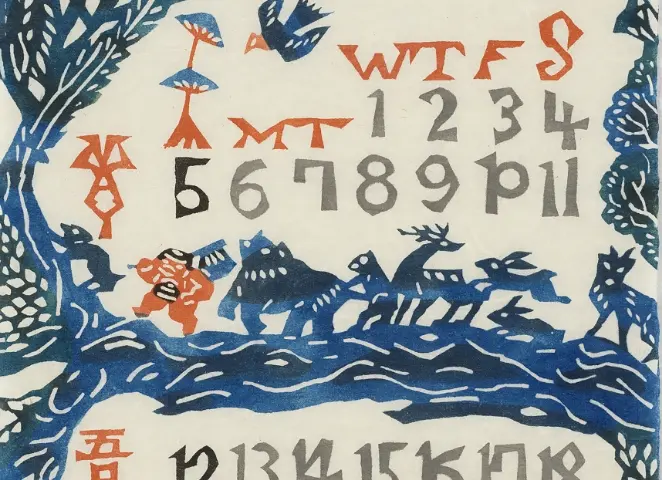 W T F S
M T 1 2 3 4
MAY
5 6 7 8 9 10 11
五
12 13 14 15 16 17 18